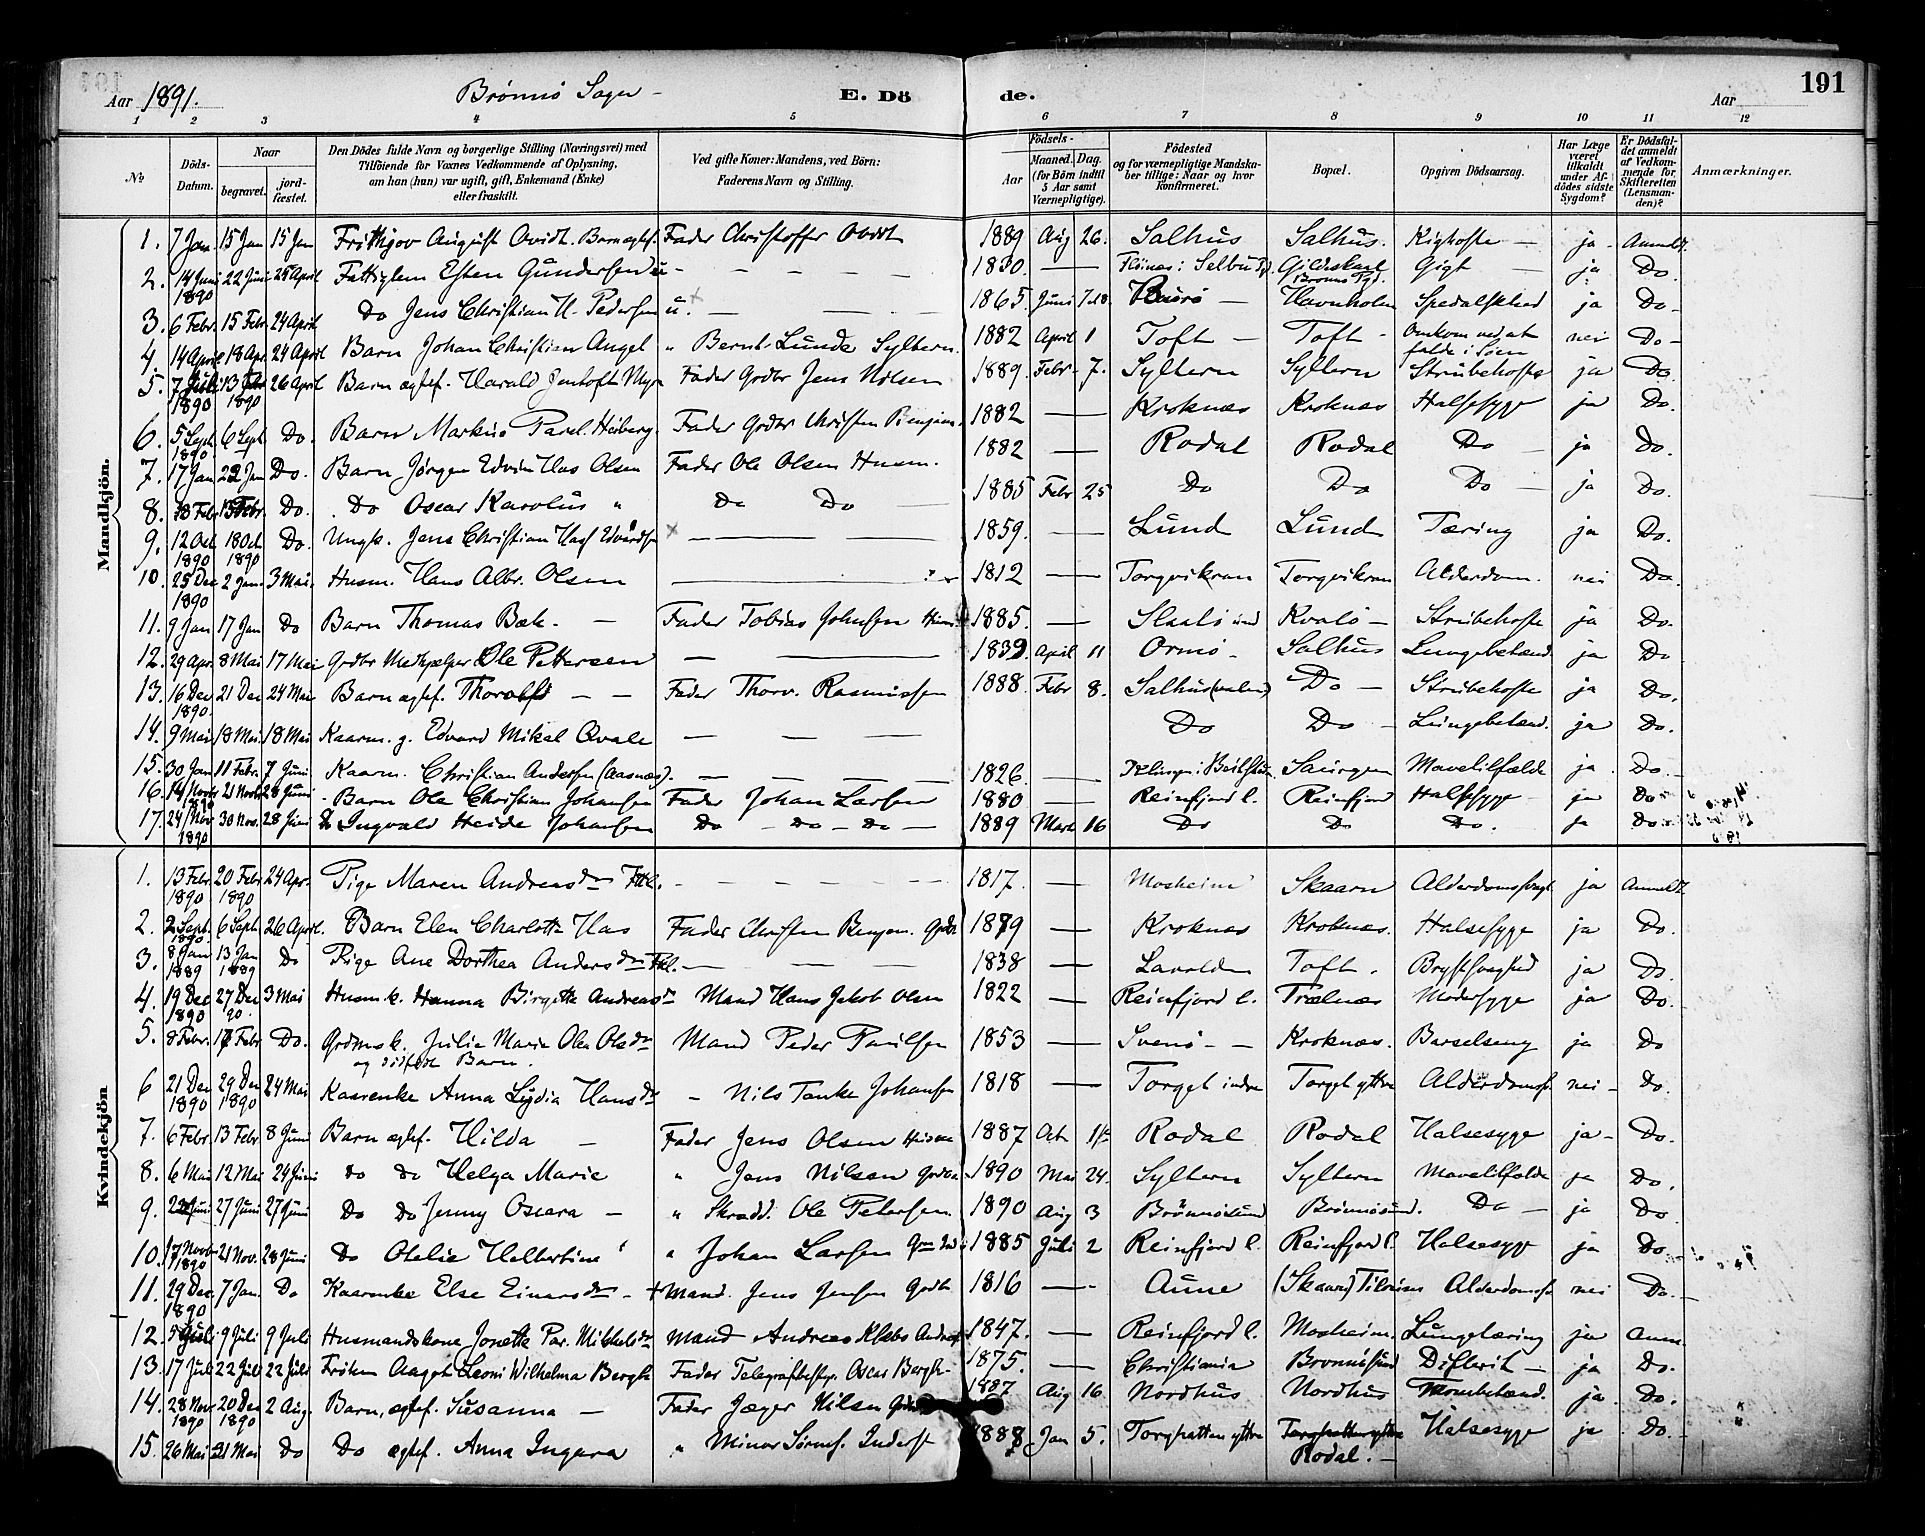 Aar 1891. Brønnø Sogn - E. Dö de. Aar 191
1 2 3 4 5 6 7 8 9 10 11 12
№ Döds-Datum. Naar begravet. jordfæstet. Den Dödes fulde Navn og borgerlige Stilling (Næringsvei) med Tilföiende for Voxnes Vedkommende af Oplysning, om han (hun) var ugift, gift, Enkemand (Enke) eller fraskilt. Ved gifte Koner: Mandens, ved Börn: Faderens Navn og Stilling. Födsels- Aar Maaned. Dag. (for Börn indtil 5 Aar samt Værnepligtige). Födested og for værnepligtige Mandskaber tillige: Naar og hvor Konfirmeret. Bopæl. Opgiven Dödsaarsag. Har Læge været tilkaldt under Afdödes sidste Sygdom? Er Dödsfaldet anmeldt af Vedkommende for Skifteretten (Lensmanden)? Anmærkninger.
Mandkjön.
1. 7 Jan 15 Jan 15 Jan Frithjov August Ovidt. Barn ægtef. Fader Christoffer Ovidt 1889 Aug 26. Salhus Salhus. Kighoste - ja - Anmeldt.
2. 14 Juni 1890 22 Juni 24 April Fattiglem Esten Gundersen u - 1830. Flönes i Selbu Gildeskaal Gigt ja Do.
3. 6 Febr. 15 Febr 24 April Do Jens Christian H. Pedersen u. 1865 Juni Havnholm Spedalskhed ja Do
4. 14 April 18 Apr. 24 April Barn Johan Christian Angel " Bernt Lunde Syltern. 1882 April 1 Toft - Toft - Omkom ved at falde i Søen nei Do -
5. 7 Juli 1890 13 1890 26 April Barn ægtef. Harald Jentoft Fader Grdbr Jens Nilsen 1889. Febr 7. Syltern Syltern Strubehoste ja Do
6. 5 Sept 1890 6 Sept Do. Barn Markus Parel. Heiberg Fader Grdbr Christen Benjam. 1882 Kroknæs Kroknæs Halsesyge ja Do.
7. 17 Jan 22 Jan Do. Barn Jørgen Edvin Has Olsen Fader Ole Olsen Husm. 1882 Rodal Rodal Do ja Do.
8. 8 Febr 13 Febr. Do. Do Oscar Karolius " Do Do 1885 Febr 25 Do Do Do - ja Do.
9. 12 Oct 1890 18 Oct 1890 Do. Ungk. Jens Christian Edvardsn 1859. Lund Lund Tæring ja Do.
10. 25 Dec 1890 2 Jan. 3 Mai. Husm. Hans Albr. Olsen 1812 Torgvikran Torgvikran Alderdom. nei Do.
11. 9 Jan 17 Jan Do Barn Thomas Bæk. Fader Tobias Johnsen Husm. 1885. Kvalø - Strubehoste ja Do.
12. 29 Apr. 8 Mai 17 Mai Grdbr Medhjelper Ole Pettersen 1832 April 11 Ormø - Salhus Lungebetænd. ja Do
13. 16 Dec 1890 21 Dec 24 Mai Barn ægtef. Thoralf Fader Thorv. Rasmussen 1888 Febr 8. Salhus Do - Strubehoste ja Do.
14. 9 Mai 18 Mai 18 Mai Kaarm. g. Edvard Mikal Qvale Do Do - Lungebetænd. ja Do.
15. 30 Jan 11 Febr. 7 Juni Kaarm. Christian Andersen (Aasnæs). 1826. Mavetilfælde ja Do.
16. 14 Novbr 1890 21 Novbr 28 Juni Barn Ole Christian Johansen Fader Johan Larsen 1880 Reinfjord l. Reinfjord Halsesyge ja Do
17. 24 Nov 1890 30 Nov. 28 Juni Do Ingvald Heide Johansen Do - Do - Do - 1889 Marts 16 Do Do Do. ja Do
Kvindekjön
1. 13 Febr 1890 20 Febr 1890 24 Apr. Pige Maren Andreasdtr Fttl. 1817. Mosheim Skaarn Alderdomssvagh ja Anmeldt
2. 2 Sept 1890 6 Sept 26 April. Barn Elen Charlotte Has Fader Christen Benjam. Grdbr 1879 Kroknæs Kroknæs. Halsesyge ja Do.
3. 8 Jan 1889 13 Jan 1889 Do Pige Ane Dorthea Andersdtr Fttl. 1838 Toft. Brystsvaghed ja Do
4. 19 Dec 1890 27 Dec 90. 3 Mai Husmk. Hanna Birgitte Andreasdtr Mand Hans Jakob Olsen 1822 Reinfjord l. Trælnæs Modersyge ja Do.
5. 8 Febr. 17 Febr Do. Grdmsk. Julie Marie Olea Olsdtr og dödfödt Barn. Mand Peder Paulsen 1853 Svenö - Kroknæs. Barselseng ja Do
6 21 Dec 1890 29 Dec 1890 24 Mai Kaarenke Anna Lydia Hansdtr - Nils Tanke Johansen 1818 Torget indre Torget yttre Alderdomssv. nei - Do.
7. 6 Febr 13 Febr 8 Juni Barn ægtef. Hilda - Fader Jens Olsen Husm 1887 Oct Rodal Rodal Halsesyge ja - Do.
8. 6 Mai 12 Mai 24 Juni do do Helga Marie " Jens Nilsen Grdbr 1890 Mai 24. Syltern Syltern Mavetilfælde ja Do.
9. 27 Juni 27 Juni Do Do Jenny Oscara - " Skrædd. Ole Petersen 1890 Aug 3 Brönnösund Brönnösund. Do - ja Do
10. 17 Novbr 1890 21 Nov. 28 Juni Do Otelie Helbertine " Johan Larsen 1885 Juli 2 Reinfjord l. Reinfjord l. Halsesyge ja Do
11. 29 Dec. 1890 7 Jan. Do Kaarenke Else Einarsdtr - Mand. Jens Jensen Grdbr 1816 Aune (Skaarn) Alderdomssv nei Do.
12. 5 Juli 9 Juli 9 Juli Husmandskone Jonetta Par. Mikkelsdtr Mand Andreas Klebo 1847. Reinfjord l. Mosheim. Lungetæring ja Anm.
13. 17 Juli 22 Juli 22 Juli Frøken Aagot Leoni Wilhelma Bergh Fader Telegrafbestyr. Oscar Bergh 1875. Christiania Brønnøsund Difterit - ja Do.
14. 28 Nov 1890 20 Dec 1890 2 Aug. Barn, ægtef. Susanna - Fader Jæger Nilsen 1887 Aug 16. Nordhus Nordhus ja Do.
15. 26 Mai 31 Mai Do Do ægtef. Anna Ingera " Minor Inderst 1888 Jan 5. Torghatten yttre Torghatten yttre Rodal. - Halsesyge ja Do.